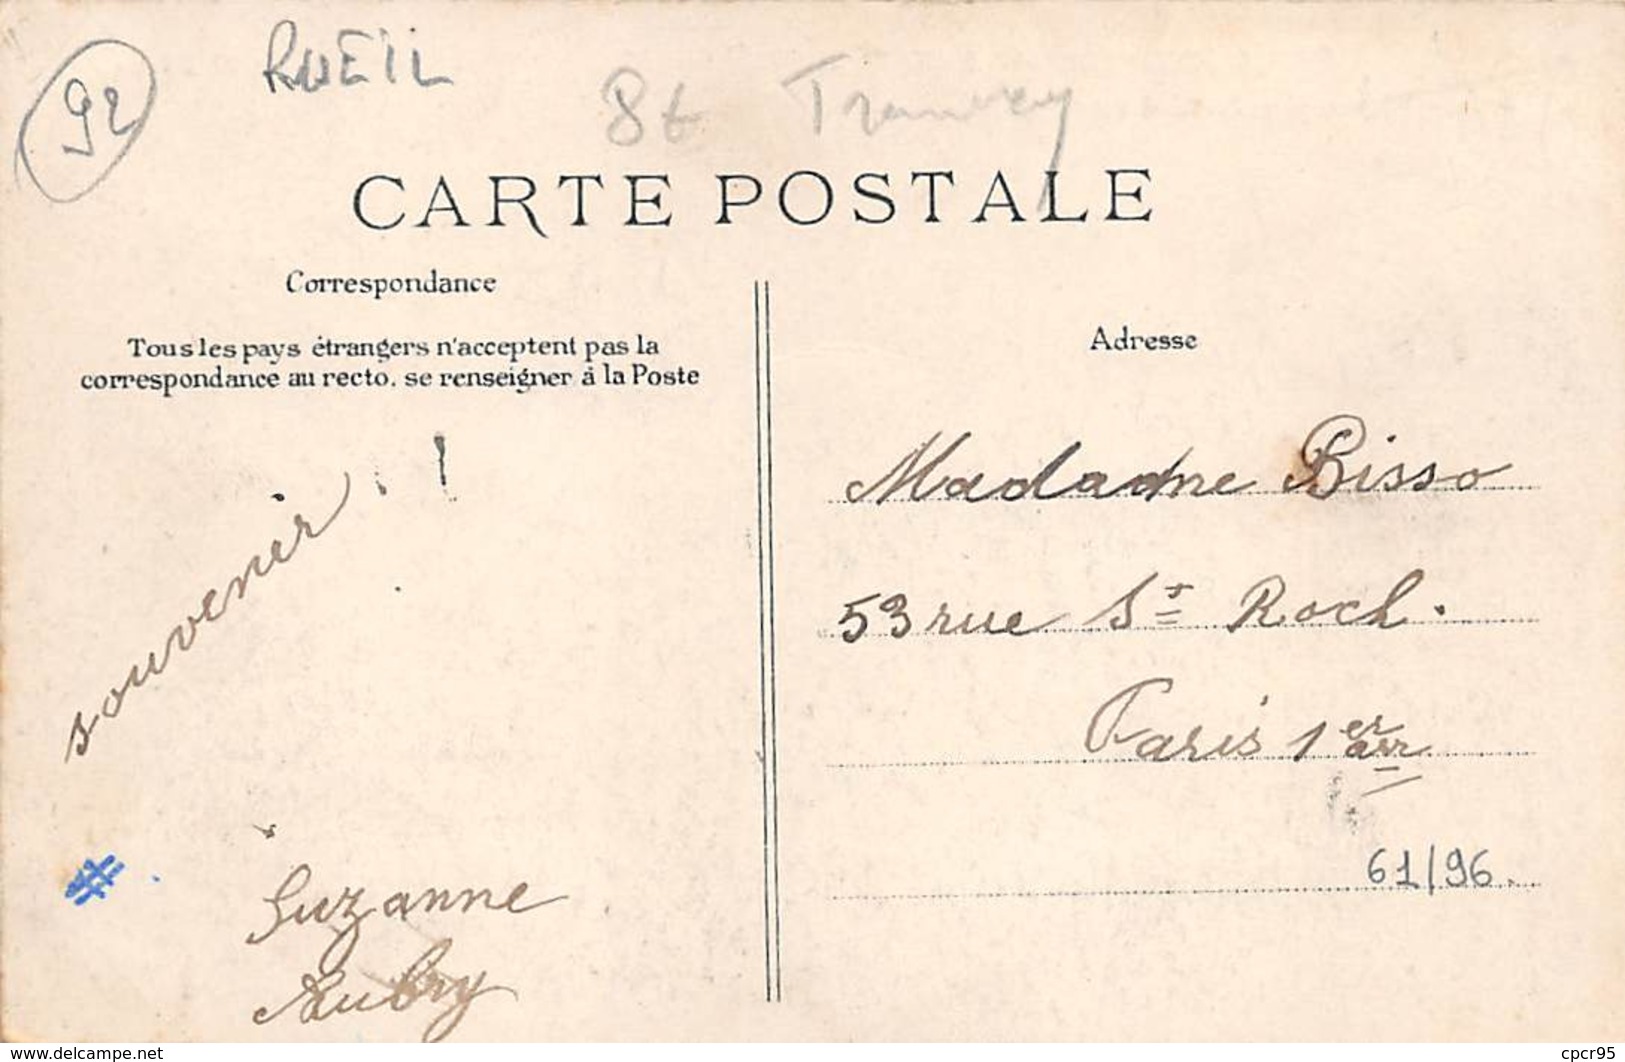 92
RUEIL
8t Tramway
CARTE POSTALE
Correspondance
Tous les pays étrangers n'acceptent pas la
correspondance au recto, se renseigner à la Poste
souvenir !
Suzanne
Aubry
Adresse
Madame Bisso
53 rue St Roch.
Paris 1er arr
61/96.
www.delcampe.net
cpcr95